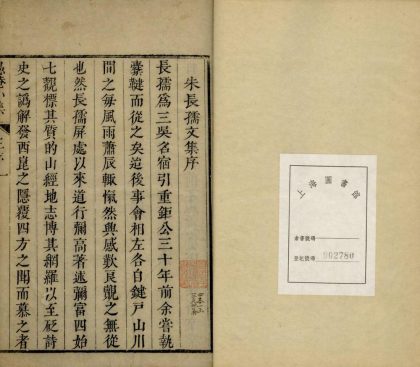 朱長孺文集序
長孺爲三吳名宿引重鉅公三十年前余嘗執
橐鞬而從之矣迨後事會相左各自鍵戸山川
間之每風雨蕭辰輙愾然興感歎良覿之無從
也然長孺屏處以來道行彌高著述彌富四始
七觀標其質的山經地志博其網羅以至砭詩
史之譌解發西崑之隱覆四方之聞而慕之者
上海圖書館
索書號碼
登記號碼 902780